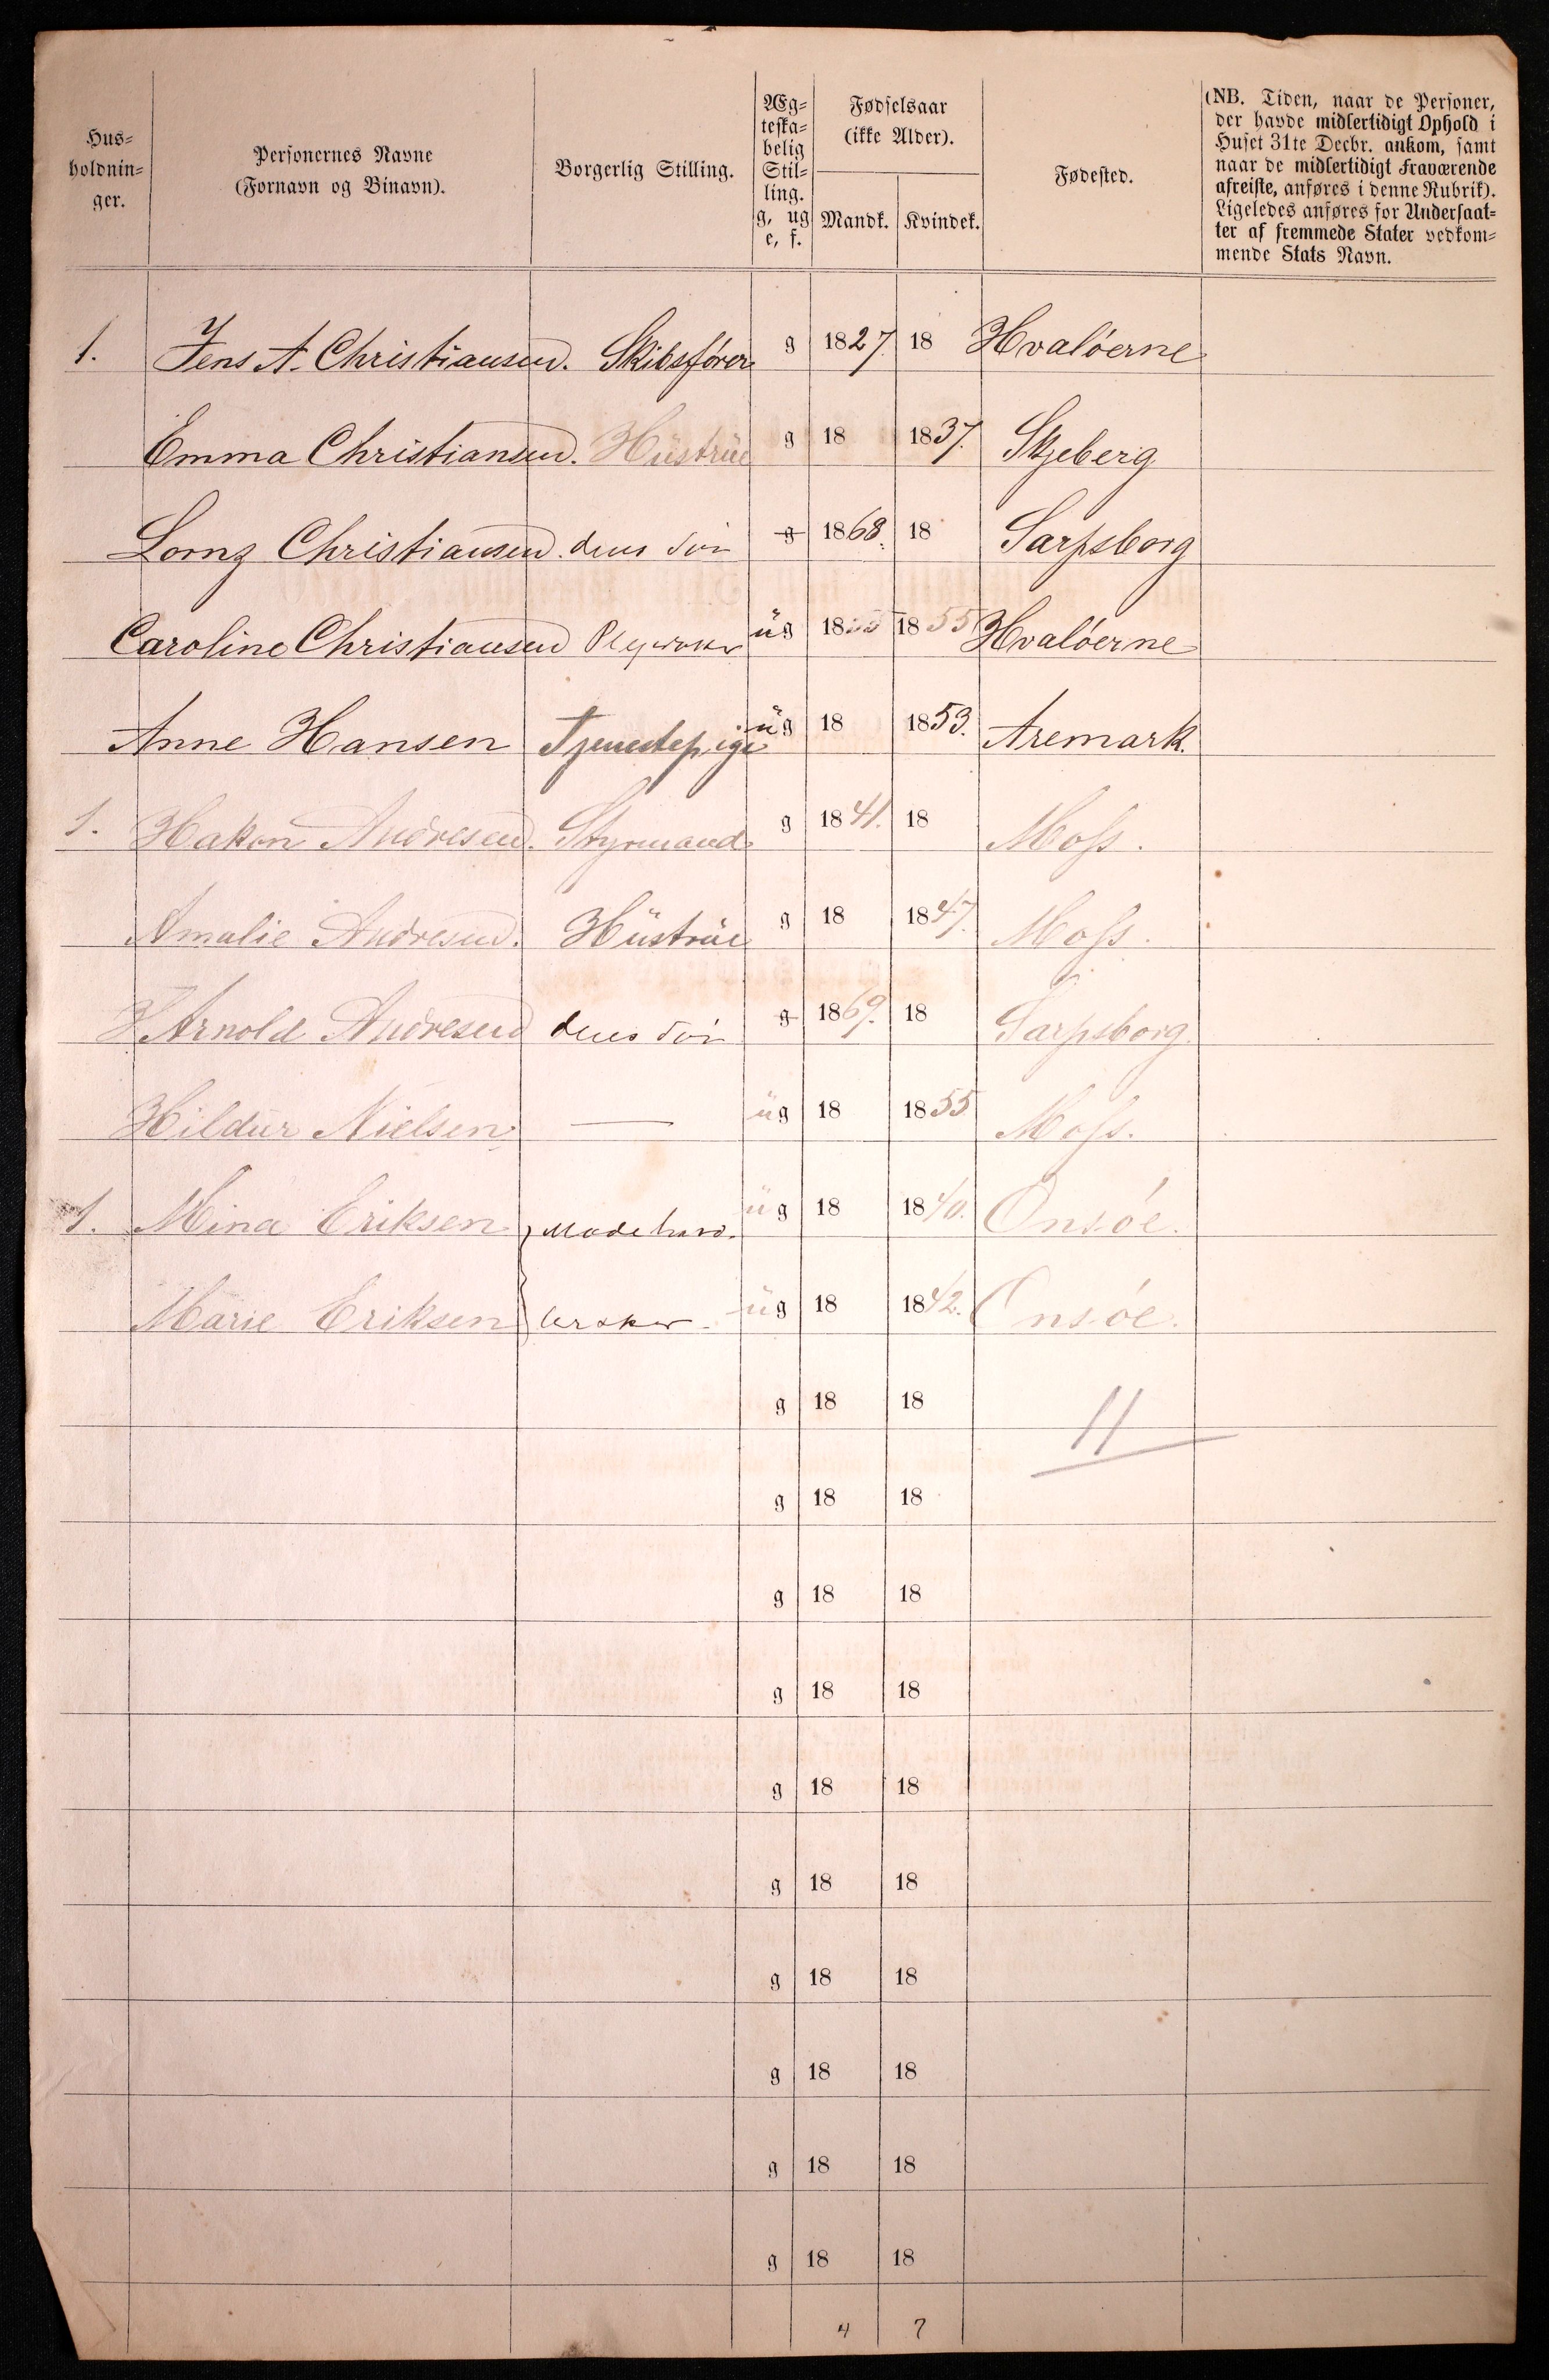 Hus-
holdnin-
ger.
Personernes Navne
(Fornavn og Binavn).
Borgerlig Stilling.
Æg-
teska-
belig
Stil-
ling.
g, ug
e, f.
Fødselsaar
(ikke Alder).
Mandk. Kvindek.
Fødested.
(NB. Tiden, naar de Personer,
der havde midlertidigt Ophold i
Huset 31te Decbr. ankom, samt
naar de midlertidigt Fraværende
afreiste, anføres i denne Rubrik).
Ligeledes anføres for Undersaat-
ter af fremmede Stater vedkom-
mende Stats Navn.
1. Jens A. Christiansen. Skibsfører g 1827. 18 Hvaløerne
Emma Christiansen. Hüstrüe g 18 1837. Skjeberg
Christiansen. deres Søn g 1868. 18 Sarpsborg
Caroline Christiansen üg 18 1855 Hvaløerne
Anne Hansen Tjenestepige üg 18 1853. Aremark.
1. Hakon Andresen. Styrmand g 1841. 18 Moss.
Amalie Andresen. Hüstrüe g 18 1847. Moss.
Arnold Andresen deres Søn g 1869. 18 Sarpsborg.
Hildür Nielsen. — üg 18 1855 Moss.
1. Mina Eriksen } Modehand. üg 18 1840. Onsøe.
Marie Eriksen } üg 18 1842. Onsøe.
g 18 18 11
g 18 18
g 18 18
g 18 18
g 18 18
g 18 18
g 18 18
g 18 18
g 18 18
g 18 18
4 7